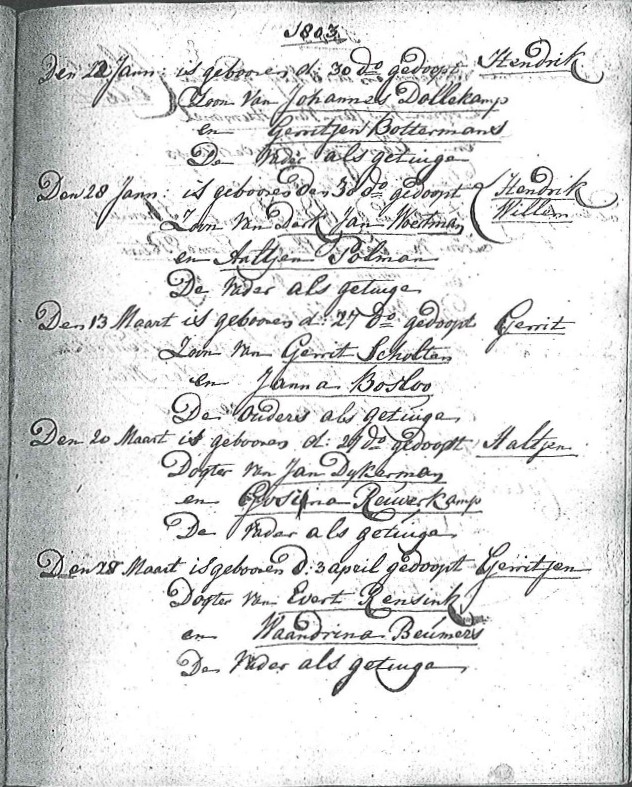 1803
Den 22 Jann: is gebooren d: 30 do gedoopt Hendrik
Zoon van Johannes Dollekamp
en Gerritjen Boltermans
De Vader als getuige
Den 28 Jann: is gebooren den 30 do gedoopt Hendrik
Willem
Zoon van Derk Jan Woelman
en Aaltjen Polman
De Vader als getuige
Den 13 Maart is gebooren d: 27 do gedoopt Gerrit
Zoon van Gerrit Scholten
en Janna Bosloo
De Ouders als getuige
Den 20 Maart is gebooren d: 27 do gedoopt Aaltjen
Dogter van Jan Dykerman
en Gosina Reuwerkamp
De Vader als getuige
Den 28 Maart is gebooren d: 3 april gedoopt Gerritjen
Dogter van Evert Rensink
en Waandrina Beúmers
De Vader als getuige